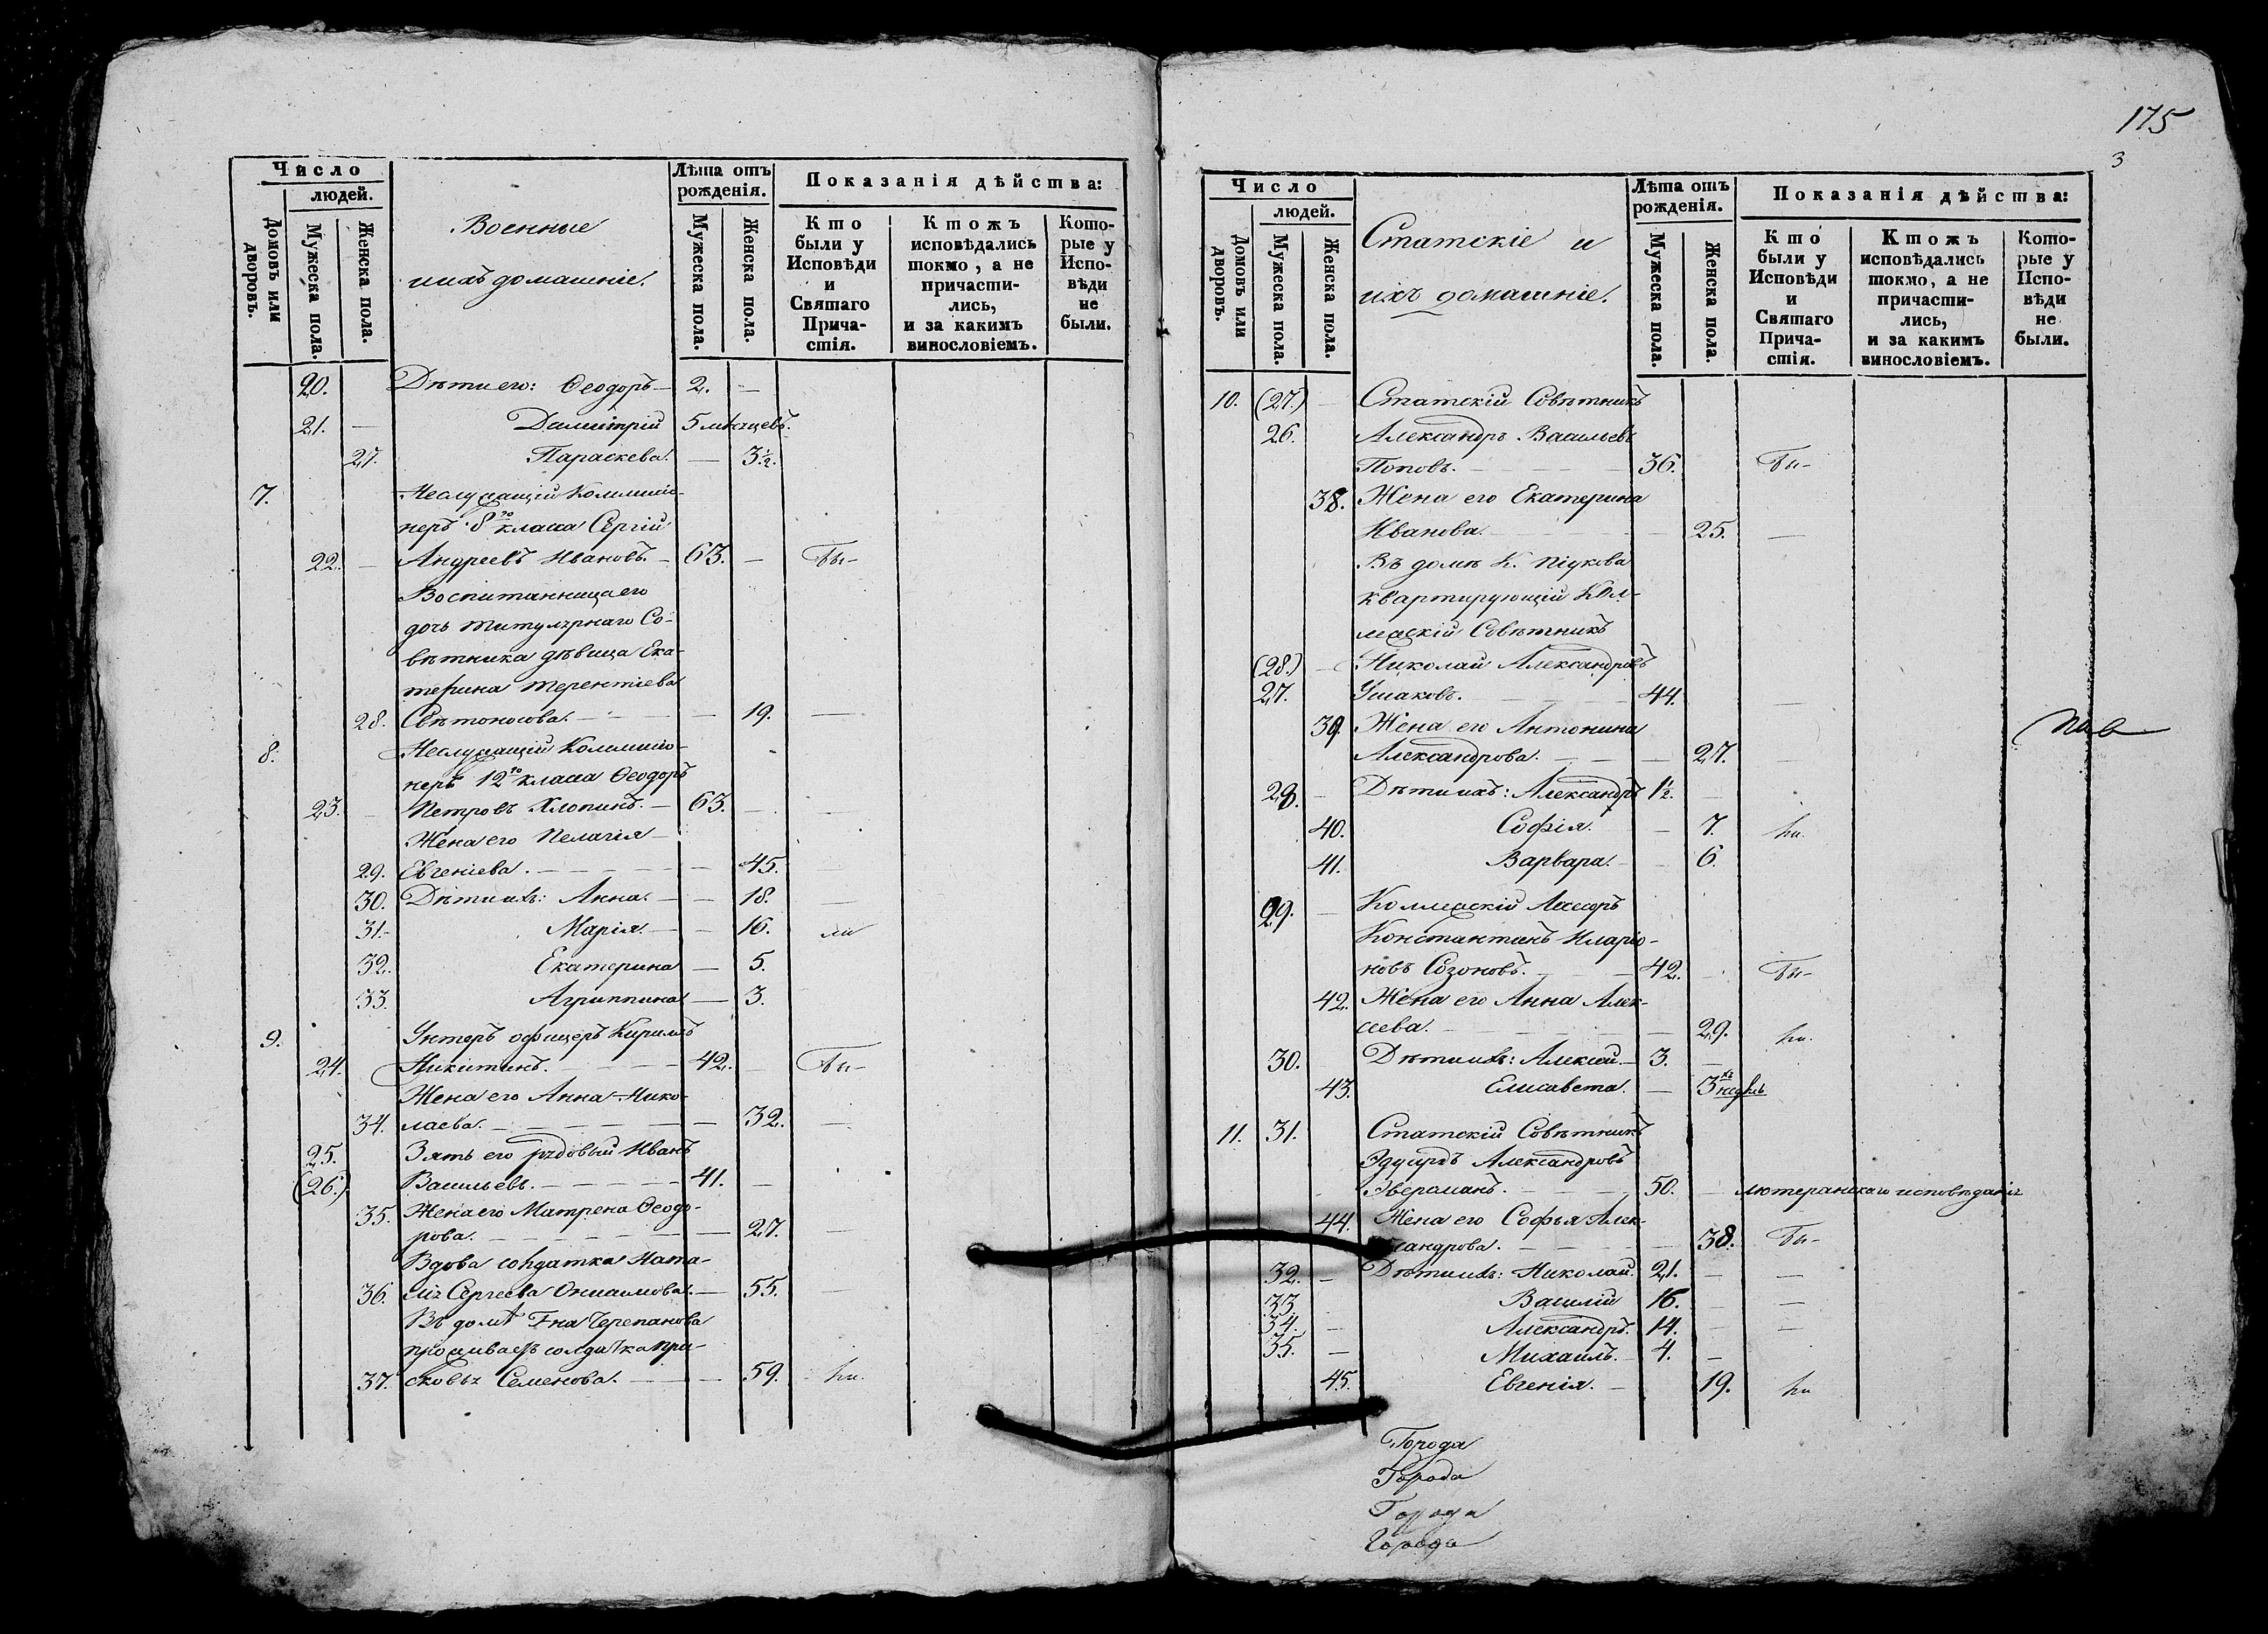 175
3
Число
людей.
Домовъ или дворовъ.
Мужеска пола.
Женска пола.
Военные
и ихъ домашніе.
Лѣта отъ рожденія.
Мужеска пола.
Женска пола.
Показанія дѣйства:
Кто были у Исповѣди и Святаго Прича-стія.
Ктожъ исповѣдались токмо, а не причасти-лись, и за какимъ винословіемъ.
Кото-рые у Испо-вѣди не были.
20. Дѣти его: Ѳеодоръ 2.
21. Димитрій 5 мѣсяцевъ.
27. Параскева. 3 1/2.
7. Неслужащій Коммисіо-
неръ 8го класса Сергій
22. Андреевъ Ивановъ. 63. Бы-
Воспитанница его
дочь титулярнаго Со-
вѣтника дѣвица Ека-
терина Терентіева
28. Свѣтоносова. 19.
8. Неслужащій Коммисіо-
неръ 12го класса Ѳеодоръ
23. Петровъ Хлопинъ. 63.
Жена его Пелагія
29. Евгеніева. 45.
30. Дѣти ихъ: Анна. 18.
31. Марія. 16. ли
32. Екатерина 5.
33. Агриппина 3.
9. Унтеръ офицеръ Кирилъ
24. Никитинъ. 42. Бы-
Жена его Анна Нико-
34. лаева. 32.
25. Зять его рядовый Иванъ
(26.) Васильевъ. 41.
35. Жена его Матрена Ѳеодо-
рова. 27.
Вдова солдатка Ната-
36. лія Сергеева 55.
Въ домѣ Г-на Черепанова
проживаетъ солдатка Пра-
37. сковья Семенова. 59. ли.
Число
людей.
Домовъ или дворовъ.
Мужеска пола.
Женска пола.
Статскіе и
ихъ домашніе.
Лѣта отъ рожденія.
Мужеска пола.
Женска пола.
Показанія дѣйства:
Кто были у Исповѣди и Святаго Прича-стія.
Ктожъ исповѣдались токмо, а не причасти-лись, и за какимъ винословіемъ.
Кото-рые у Испо-вѣди не были.
10. (27.) Статскій Совѣтникъ
26. Александръ Васильевъ
Поповъ. 36. Бы-
38. Жена его Екатерина
Иванова. 25.
Въ домѣ К.
квартирующій Кол-
лежскій Совѣтникъ
(28.) Николай Александровъ
27. Ушаковъ. 44.
39. Жена его Антонина
Александрова. 27.
28. Дѣти ихъ: Александръ 1 1/2.
40. Софія. 7. ли.
41. Варвара. 6.
29. Коллежскій Асессоръ
Константинъ Иларіо-
новъ Созоновъ. 42. Бы-
42. Жена его Анна Алек-
сеева. 29. ли.
30. Дѣти ихъ: Алексій. 3.
43. Елисавета. 3хъ недѣль
11. 31. Статскій Совѣтникъ
Эдуардъ Александровъ
Эверсманъ. 50. лютеранскаго исповѣданія
44. Жена его Софья Алек-
сандрова. 38. Бы-
32. Дѣти ихъ: Николай. 21.
33. Василій 16.
34. Александръ. 14.
35. Михаилъ. 4.
45. Евгенія. 19. ли
Города
Города
Города
Города